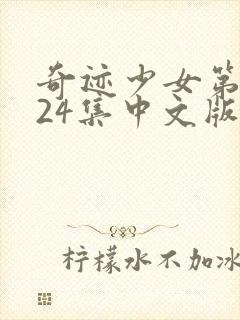 奇迹少女第
24集中文版
柠檬水不加冰